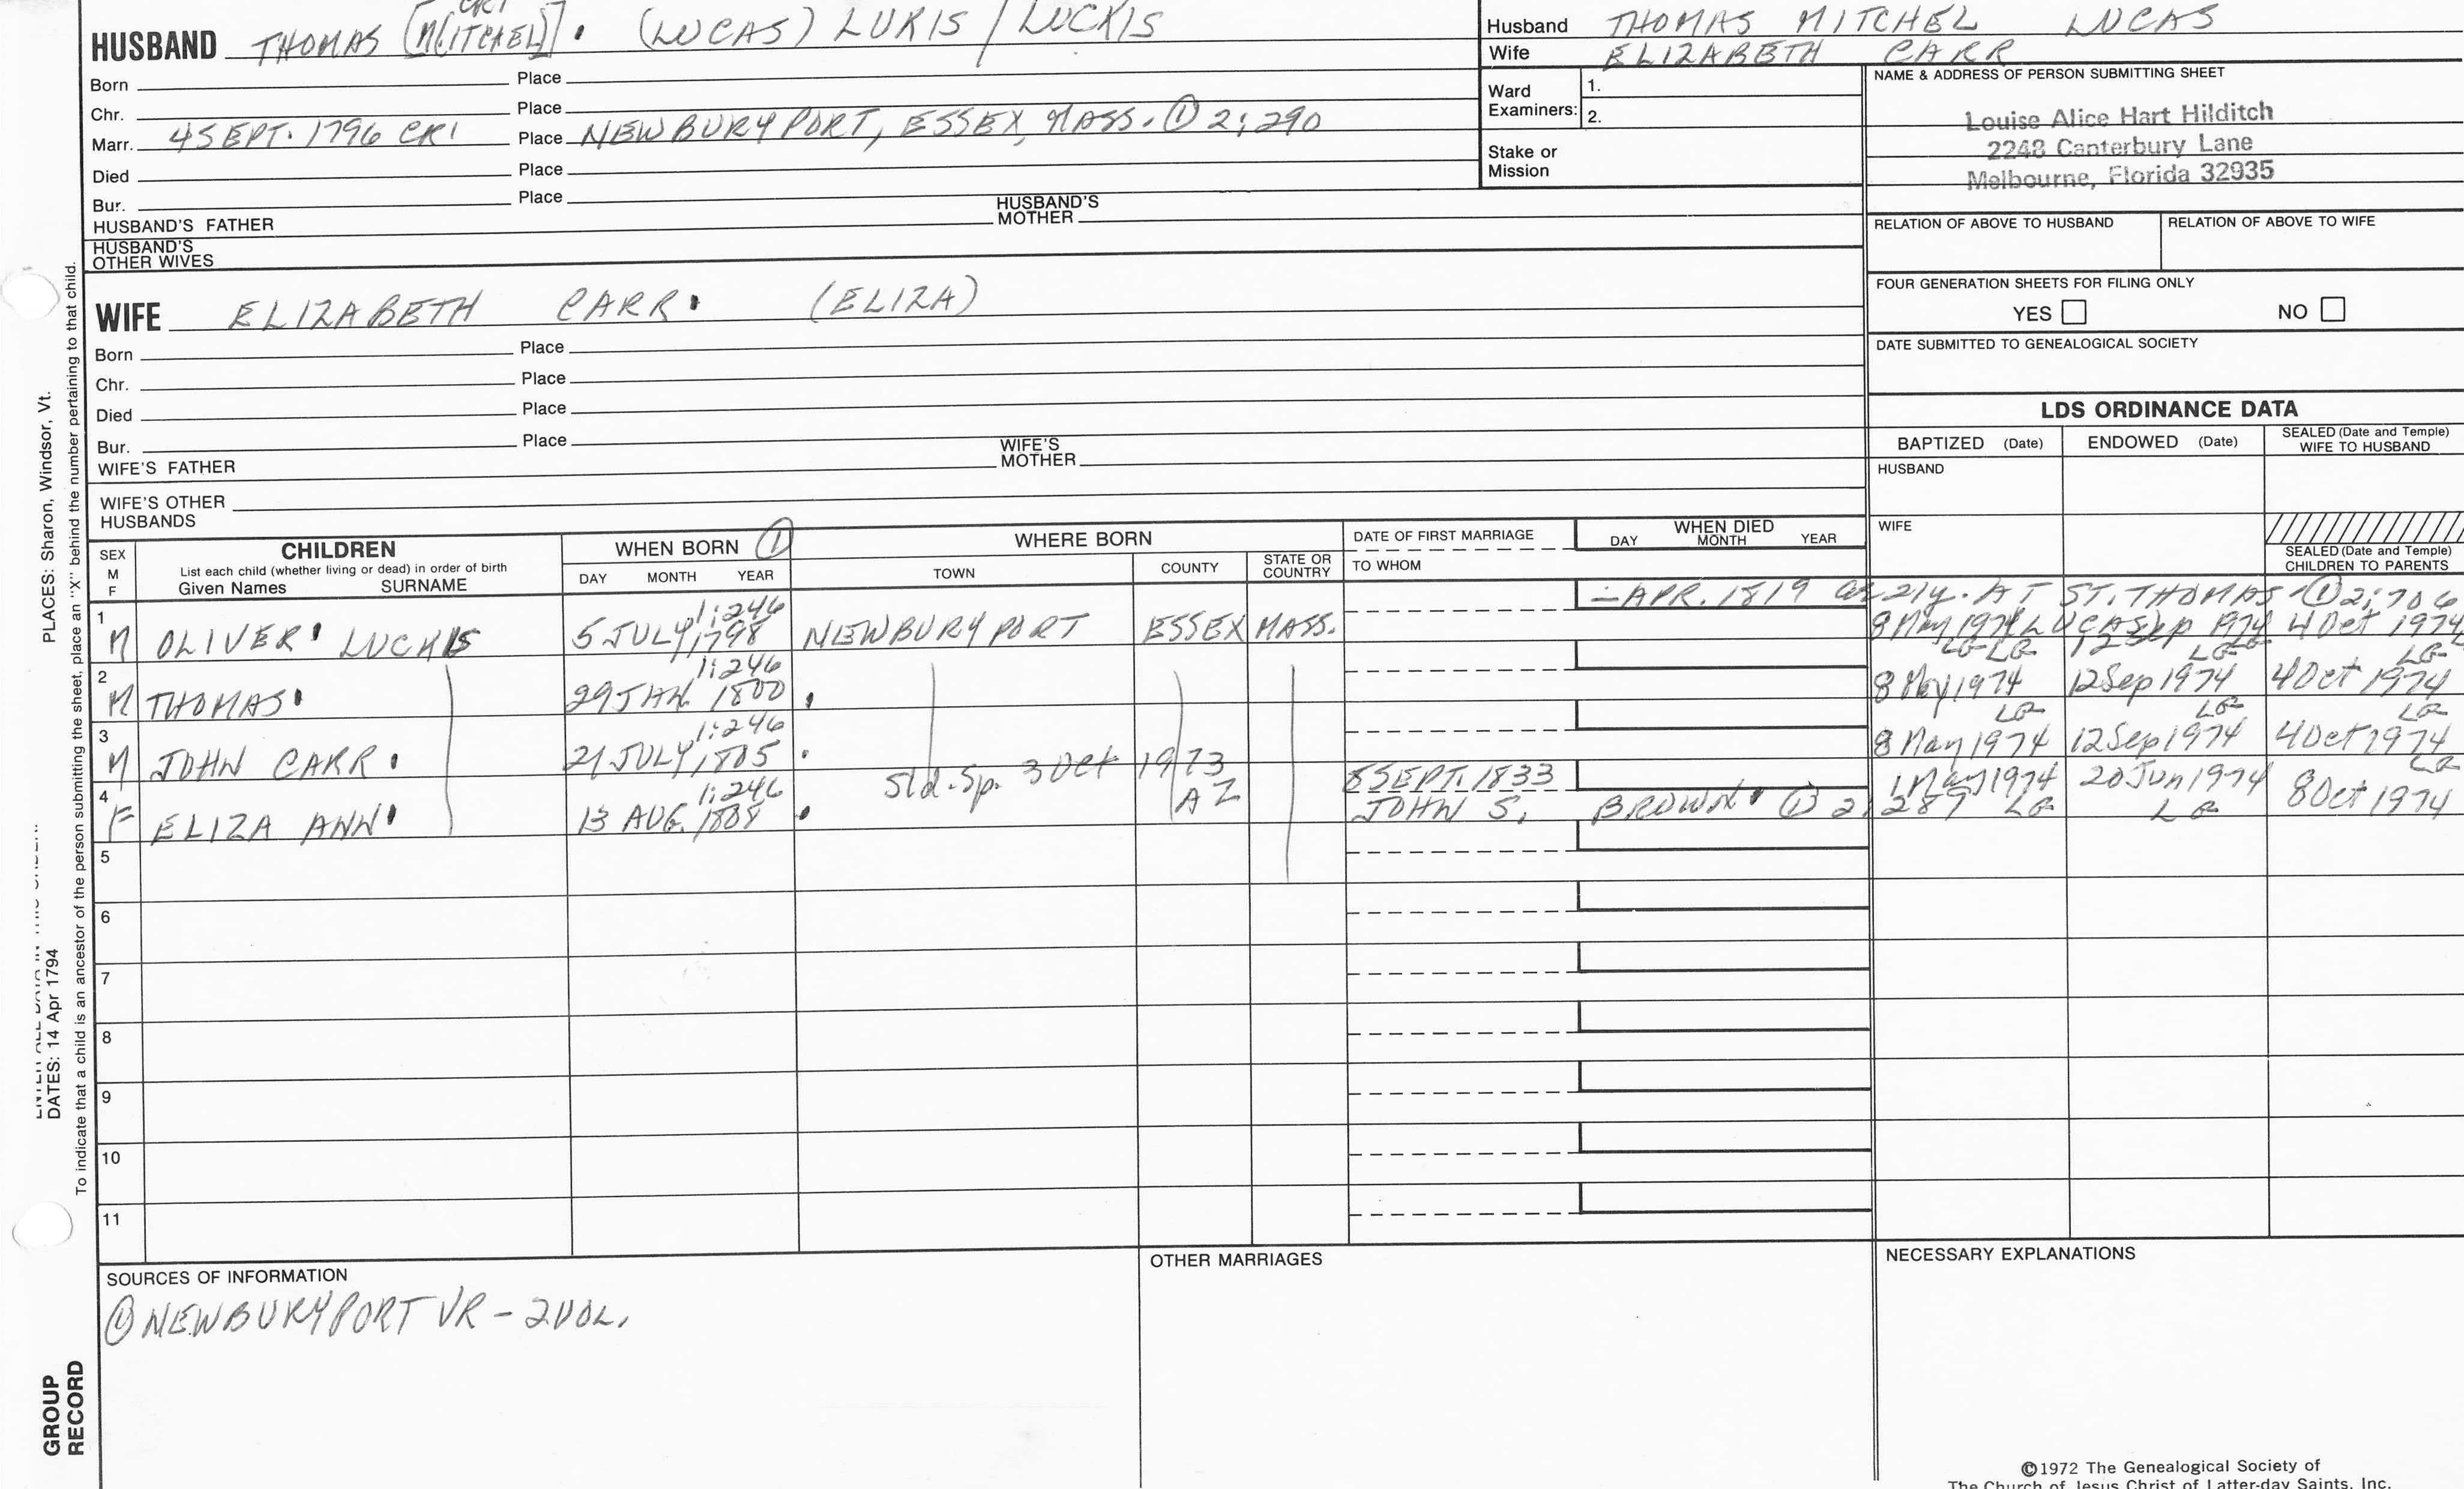 HUSBAND THOMAS [M[ITCHEL]]. (LUCAS) LUKIS / LUCKIS
Born Place
Chr. Place
Marr. 4 SEPT. 1796 CR1 Place NEWBURYPORT, ESSEX, MASS. ① 2:290
Died Place
Bur. Place
HUSBAND'S FATHER HUSBAND'S MOTHER
HUSBAND'S OTHER WIVES
Husband THOMAS MITCHEL LUCAS
Wife ELIZABETH CARR
Ward Examiners: 1.
2.
Stake or Mission
NAME & ADDRESS OF PERSON SUBMITTING SHEET
Louise Alice Hart Hilditch
2248 Canterbury Lane
Melbourne, Florida 32935
RELATION OF ABOVE TO HUSBAND RELATION OF ABOVE TO WIFE
FOUR GENERATION SHEETS FOR FILING ONLY
YES NO
DATE SUBMITTED TO GENEALOGICAL SOCIETY
WIFE ELIZABETH CARR. (ELIZA)
Born Place
Chr. Place
Died Place
Bur. Place
WIFE'S FATHER WIFE'S MOTHER
WIFE'S OTHER HUSBANDS
LDS ORDINANCE DATA
BAPTIZED (Date) ENDOWED (Date) SEALED (Date and Temple) WIFE TO HUSBAND
HUSBAND
WIFE
SEALED (Date and Temple) CHILDREN TO PARENTS
SEX M F
CHILDREN
List each child (whether living or dead) in order of birth
Given Names SURNAME
WHEN BORN ①
DAY MONTH YEAR
WHERE BORN
TOWN COUNTY STATE OR COUNTRY
DATE OF FIRST MARRIAGE
TO WHOM
WHEN DIED
DAY MONTH YEAR
- APR. 1819 ae 21y. AT ST. THOMAS ① 2:706
1 M OLIVER. LUCKIS 1:246 5 JULY 1798 NEWBURYPORT ESSEX MASS. 8 May 1974 LUCAS 12 Sep 1974 4 Oct 1974
LG LG LG LG
2 M THOMAS. 1:246 29 JAN. 1800 . 8 May 1974 12 Sep 1974 4 Oct 1974
LG LG LG
3 M JOHN CARR. 1:246 21 JULY 1805 . 8 May 1974 12 Sep 1974 4 Oct 1974
LG
Sld. Sp. 3 Oct 1973
AZ
4 F ELIZA ANN. 1:246 13 AUG. 1808 . 8 SEPT. 1833 1 May 1974 20 Jun 1974 8 Oct 1974
JOHN S. BROWN. ① 2:287 LG LG
5
6
7
8
9
10
11
SOURCES OF INFORMATION
① NEWBURYPORT VR - 2 VOL.
OTHER MARRIAGES
NECESSARY EXPLANATIONS
©1972 The Genealogical Society of
The Church of Jesus Christ of Latter-day Saints, Inc.
PLACES: Sharon, Windsor, Vt.
DATES: 14 Apr 1794
To indicate that a child is an ancestor of the person submitting the sheet, place an "X" behind the number pertaining to that child.
GROUP RECORD